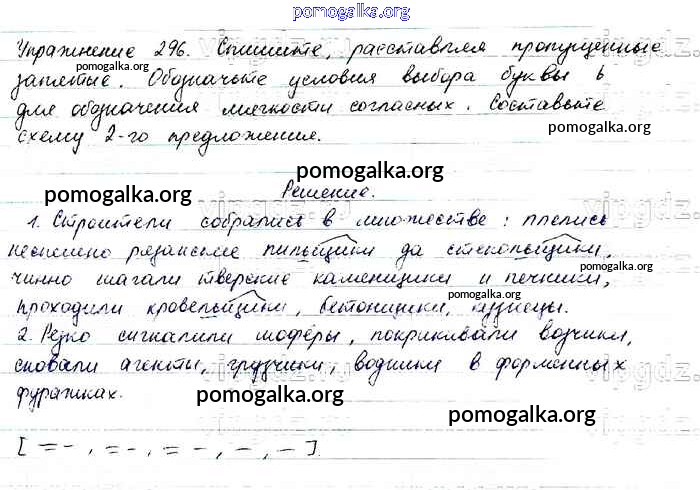 pomogalka.org
Упражнение 296. Спишите, расставляя пропущенные
запятые. Обозначьте условия выбора буквы ь
pomogalka.org
для обозначения мягкости согласных. Составьте
схему 2-го предложения.
pomogalka.org
pomogalka.org
pomogalka.org
Решение.
1. Строители собрались в множестве: плелись
неспешно рязанские пильщики да стекольщики,
pomogalka.org
чинно шагали тверские каменщики и печники,
pomogalka.org
проходили кровельщики, бетонщики, кузнецы.
2. Резко сигналили шофёры, покрикивали возчики,
сновали агенты, грузчики, водники в форменных
фуражках.
pomogalka.org
pomogalka.org
[ = – , = – , = – , – , – ]
pomogalka.org
pomogalka.org